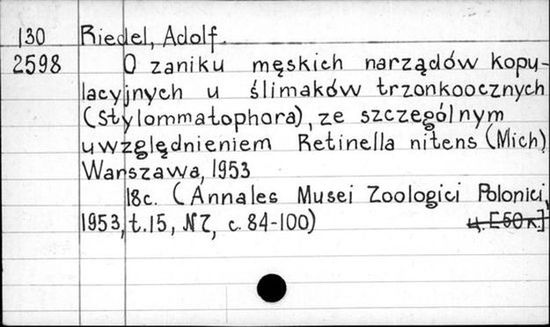 130 Riedel, Adolf.
2598 O zaniku męskich narządów kopu-
lacyjnych u ślimaków trzonkoocznych
(Stylommatophora), ze szczególnym
uwzględnieniem Retinella nitens (Mich)
Warszawa, 1953
18c. (Annales Musei Zoologici Polonici,
1953, t.15, N7, c. 84-100) ц. [50к.]